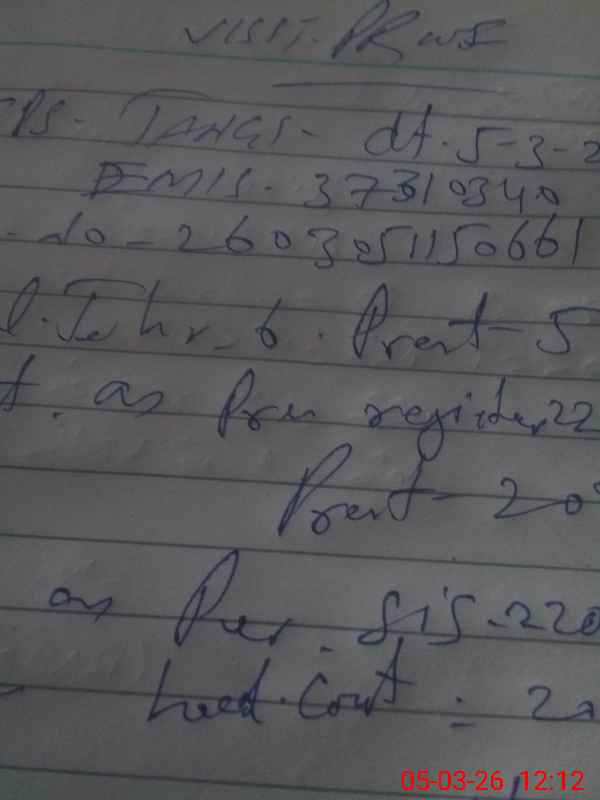 VISIT. PROOF
GPS. TANGI. dt. 5-3-2
EMIS. 37310340
- do - 2603051150661
l. Tehr_ 6. Prent - 5
t. as Per register 22
Prent - 20
as Per. SIS. 220
head. Count = 2
05-03-26 12:12